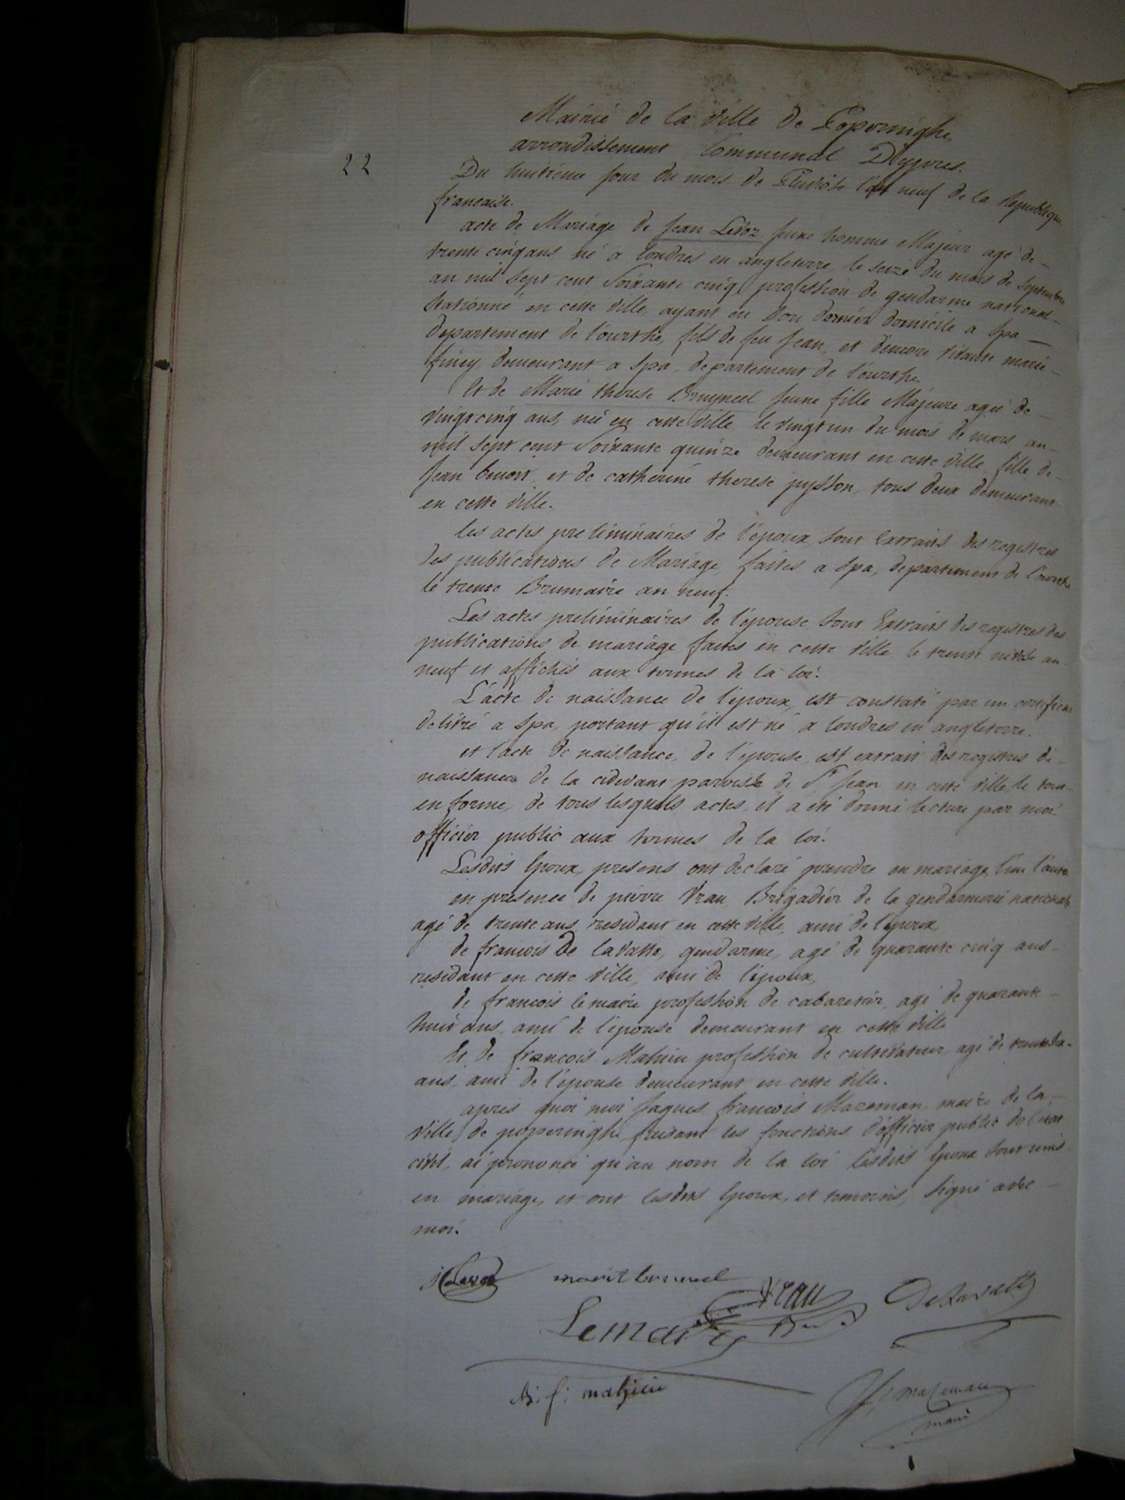 Mairie de la ville de Poperinghe
arrondissement Communal D'ypres.
22
Du huitieme jour du mois de Pluviôse l'an neuf de la Republique
francaise.
acte de Mariage de Jean Ledoz jeune homme Majeur agé de
trente cinq ans né a Londres en angleterre, le seize du mois de septembre
an mil sept cent soixante cinq, profession de gendarme national
stationné en cette ville, ayant eu son dernier domicile a Spa
departement de l'ourthe, fils de feu Jean, et de marie
demeurant a Spa, departement de l'ourthe
Et de Marie therese Bruyneel jeune fille Majeure agée de
vingt cinq ans, née en cette ville le vingt un du mois de mars an
mil sept cent soixante quinze demeurant en cette ville, fille de
Jean benoit, et de catherine therese pysson, tous deux demeurant
en cette ville.
les actes preliminaires de l'époux sont Extraits des registres
des publications de Mariage, faites a Spa, departement de l'ourthe
le trente Brumaire an neuf.
Les actes preliminaires de l'épouse sont Extraits des registres des
publications de mariage faites en cette ville le trente nivôse an
neuf et affichés aux termes de la loi.
L'acte de naissance de l'époux, est constaté par un certificat
delivré a Spa, portant qu'il est né a londres en angleterre.
et l'acte de naissance, de l'épouse, est extrait des registres de
naissance de la cidevant paroisse de St Jean en cette ville, le tout
en forme, de tous lesquels actes, il a été donné lecture par moi
officier public aux termes de la loi.
Lesdits Epoux presens ont declaré prendre en mariage l'un l'autre
en presence de pierre Vrau Brigadier de la gendarmerie nationale
agé de trente ans, residant en cette ville, ami de l'époux
de francois De gendarme, agé de quarante cinq ans
residant en cette ville, ami de l'époux
de francois lemaire profession de cabaretier, agé de quarante
huit ans, ami de l'épouse demeurant en cette ville
Et de francois Mahieu profession de cultivateur, agé de
ans, ami de l'épouse demeurant en cette ville.
apres quoi moi Jaques francois Mazeman maire de la
ville de poperinghe faisant les fonctions d'officier public de l'etat
civil, ai prononcé qu'au nom de la loi lesdits Epoux sont unis
en mariage, et ont lesdits Epoux, et temoins, signé avec
moi.
Vrau
Lemaire
f: mahieu
mazeman
maire